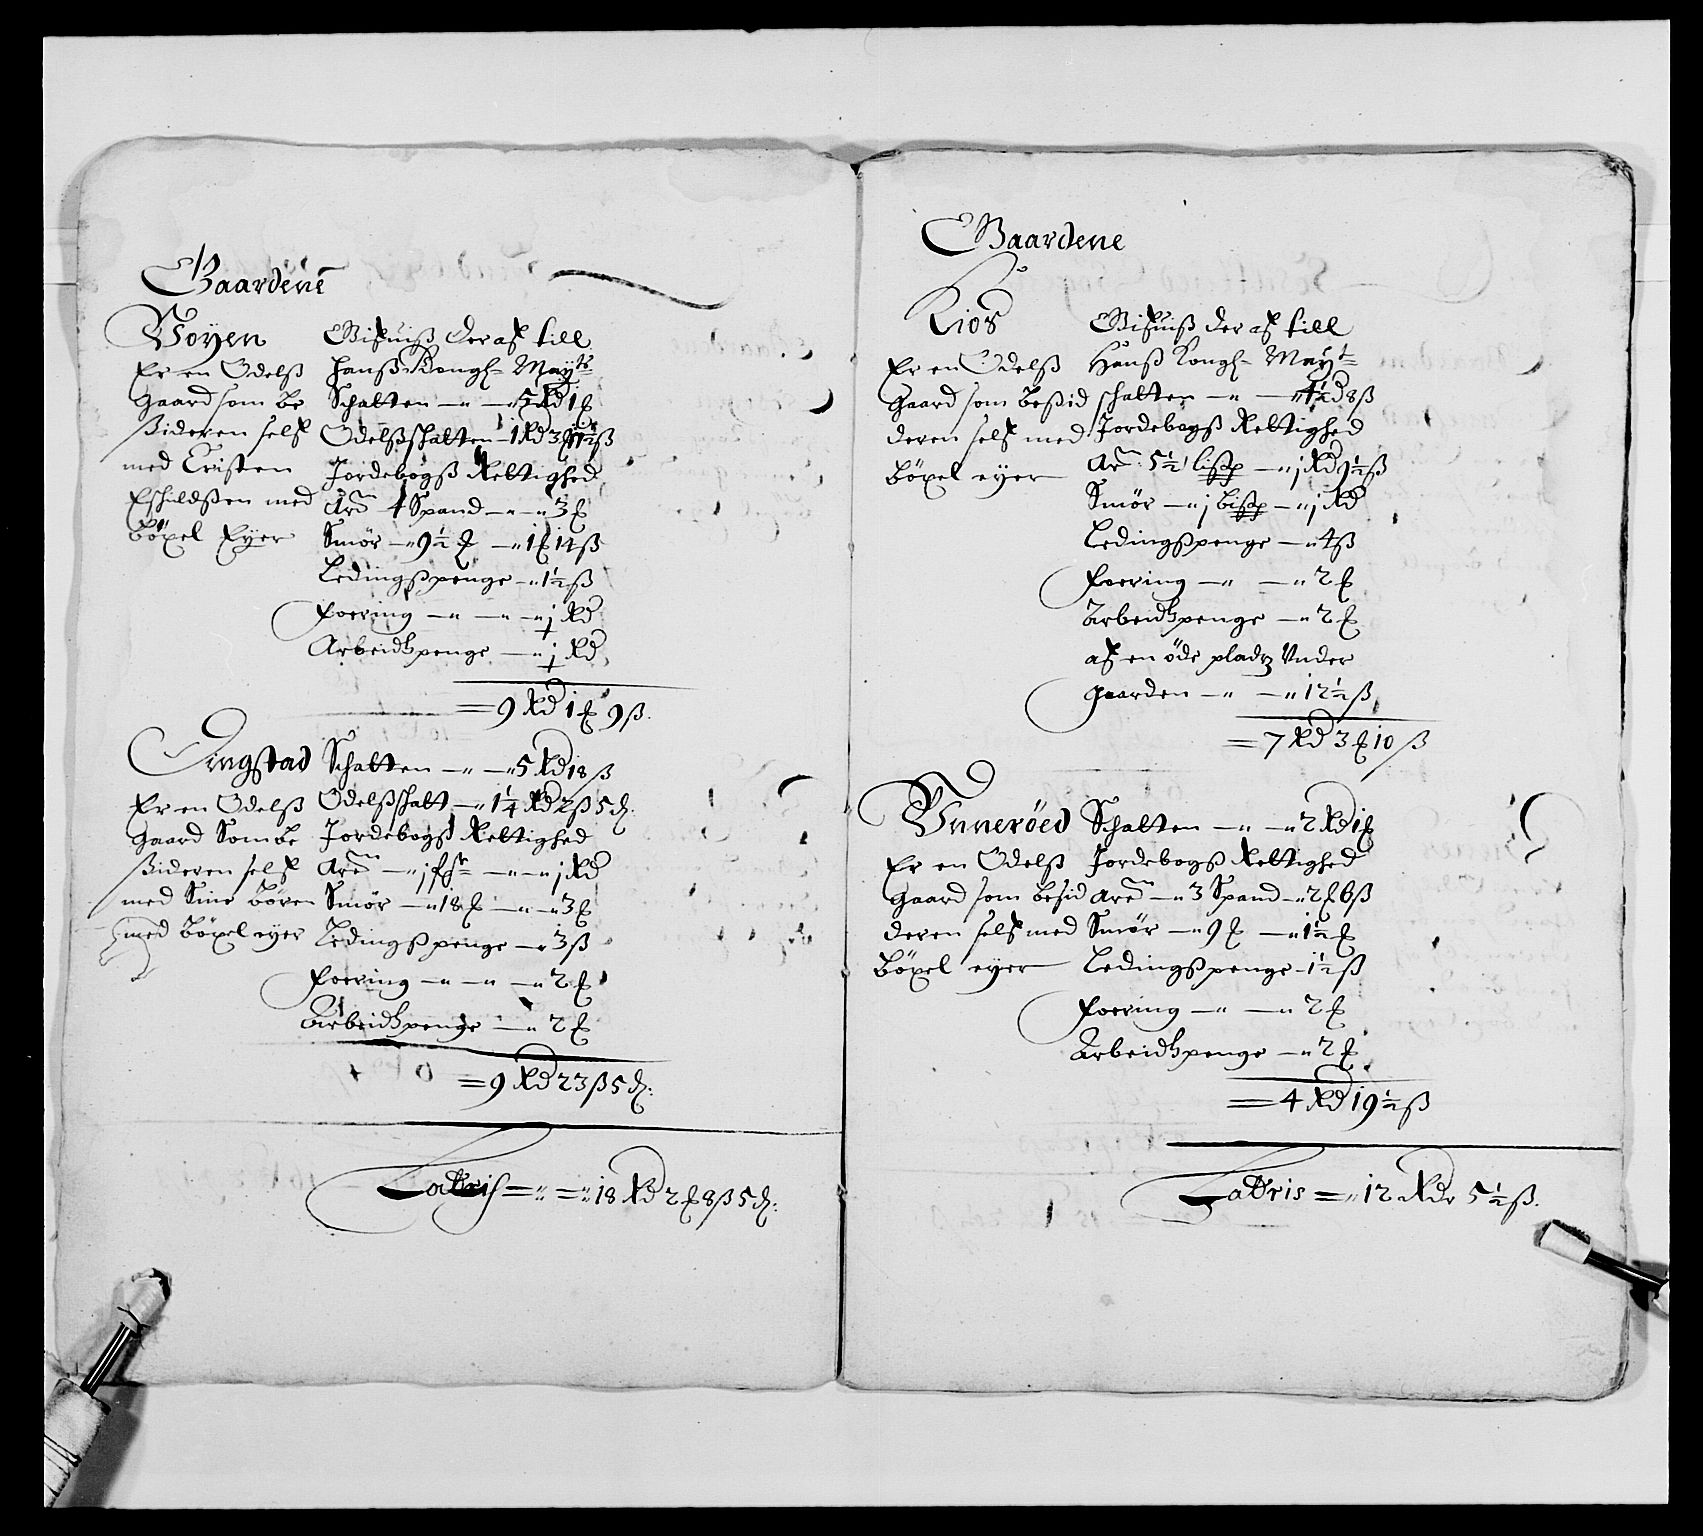 Gaardene
Woyen
Er en Odelß
Gaard som be
ßideren self
med Cristen
Eschildßen med
böxel Eyer
Gifuiß der af till
Hanß Kongl: May:ts
Schatten — „ — „ 5 Rd 1
Odelßschatten — 1 Rd 3
Jordebogß Rettighed
4 Spand — „ — „ 3
Smör — „ 9½ — „ 1 14 ß
Ledingßpenge — „ 1½ ß
Foering — „ — „ — „ j Rd
Arbeidtzpenge — „ j Rd
= 9 Rd 1 9 ß.
Ringstad
Er en Odelß
Gaard Som be
ßideren self
med Sine Bören
med böxel eyer
Schatten — „ — „ 5 Rd 18 ß
Odelßschatt — „ 1¼ Rd 2 ß 5 d:
Jordebogß Rettighed
— „ j — „ — „ j Rd
Smör — „ 18 — „ — „ 3
Ledingßpenge — „ 3 ß
Foering — „ — „ — „ 2
Arbeidtzpenge — „ 2
= 9 Rd 23 ß 5 d:
Lattris = „ = „ 18 Rd 2 8 ß 5 d:
Gaardene
Kios
Er en Odelß
Gaard som beßid
deren self med
böxel eyer
Gifuiß der af till
Hanß Kongl: May:ts
schatten — „ — „ 4½ d 8 ß
Jordebogß Rettighed
5½ lißp — „ j Rd 9½ ß
Smör — „ j bißp — „ j Rd
Ledingßpenge — „ 4 ß
Foering — „ — „ 2
Arbeidtzpenge — „ 2
af en öde pladtz Vnder
gaarden — „ — „ 12½ ß
= 7 Rd 3 10 ß
Vnneröed
Er en Odelß
Gaard som besid
deren self med
böxel eyer
Schatten — „ — „ 2 Rd 1
Jordebogß Rettighed
— „ 3 Spand — „ 2 6 ß
Smör — „ 9 — „ 1½
Ledingßpenge — 1½ ß
Foering — „ — „ 2
Arbeidtzpenge — „ 2
= 4 Rd 19½ ß
Lattris = „ 12 Rdr 5½ ß.